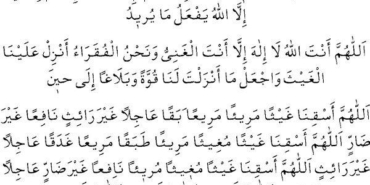 إِلَّا اللهُ يَفْعَلُ مَا يُرِيْدُ
اَللّٰهُمَّ أَنْتَ اللهُ لَا إِلٰهَ إِلَّا أَنْتَ الْغَنِيُّ وَنَحْنُ الْفُقَرَاءُ أَنْزِلْ عَلَيْنَا
الْغَيْثَ وَاجْعَلْ مَا أَنْزَلْتَ لَنَا قُوَّةً وَبَلَاغًا إِلَى حِيْنَ
اَللّٰهُمَّ أَسْقِنَا غَيْثًا مَرِيْئًا مَرِيْعًا بَقًا عَاجِلًا غَيْرَ رَائِثٍ نَافِعًا غَيْرَ
ضَارٍّ اَللّٰهُمَّ أَسْقِنَا غَيْثًا مُغِيْثًا مَرِيْئًا طَبَقًا مَرِيْعًا غَدَقًا عَاجِلًا
غَيْرَ رَائِثٍ اَللّٰهُمَّ أَسْقِنَا غَيْثًا مُغِيْثًا مُرِيْئًا نَافِعًا غَيْرَ ضَارٍّ عَاجِلًا